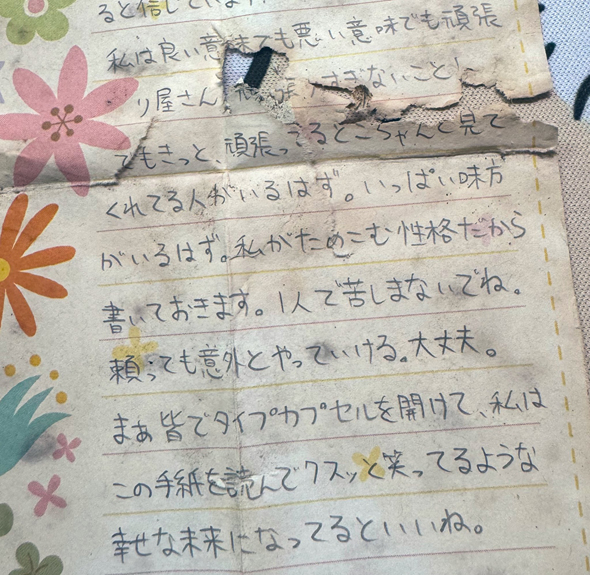 ると信じています
私は良い意味でも悪い意味でも頑張
り屋さん 頑張 すぎないこと!
でもきっと、頑張ってるところちゃんと見て
くれてる人がいるはず。いっぱい味方
がいるはず。私がためこむ性格だから
書いておきます。1人で苦しまないでね。
頼っても意外とやっていける。大丈夫。
まぁ皆でタイプカプセルを開けて、私は
この手紙を読んでクスッと笑ってるような
幸せな未来になってるといいね。